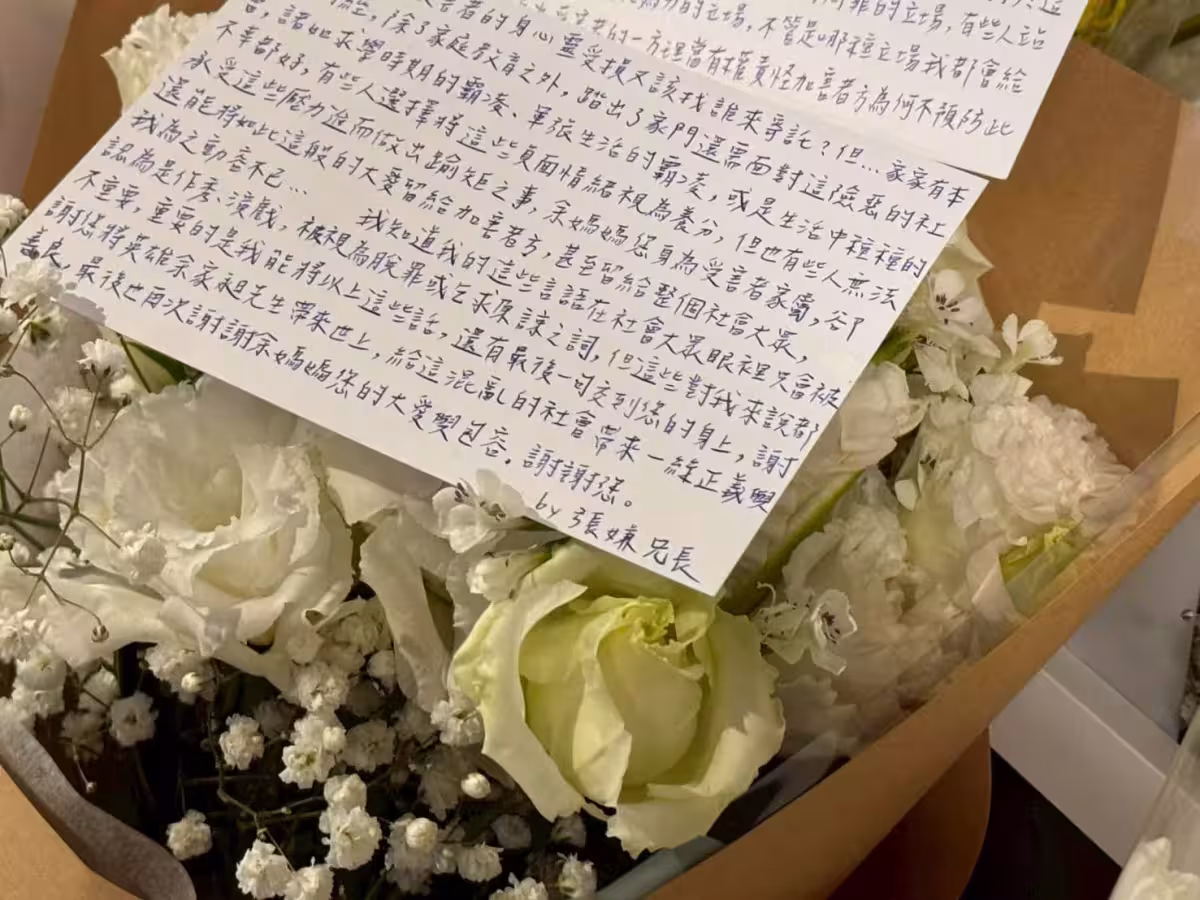 罪的立場,有些人站
的立場,不管是哪種立場我都會給
的一方理當有權責怪加害者方為何不預防此
害者的身心靈受損又該找誰來尋託?但…家家有本
除了家庭教育之外,踏出了家門還需面對這險惡的社
會,諸如求學時期的霸凌、生活的霸凌,或是生活中種種的
不幸都好,有些人選擇將這些負面情緒視為養分,但也有些人無法
承受這些壓力進而做出踰矩之事,余媽媽您身為受害者家屬,卻
還能將如此這般的大愛留給加害者方,甚至留給整個社會大眾,
我為之動容不已… 我知道我的這些言語在社會大眾眼裡只會被
認為是作秀、演戲,被視為脫罪或乞求原諒之詞,但這些對我來說都
不重要,重要的是我能將以上這些話,還有最後一句交到您的身上,謝
謝您將英雄余家昶先生帶來世上,給這混亂的社會帶來一絲正義與
善良,最後也再次謝謝余媽媽您的大愛與包容,謝謝您。
by 張嫌兄長